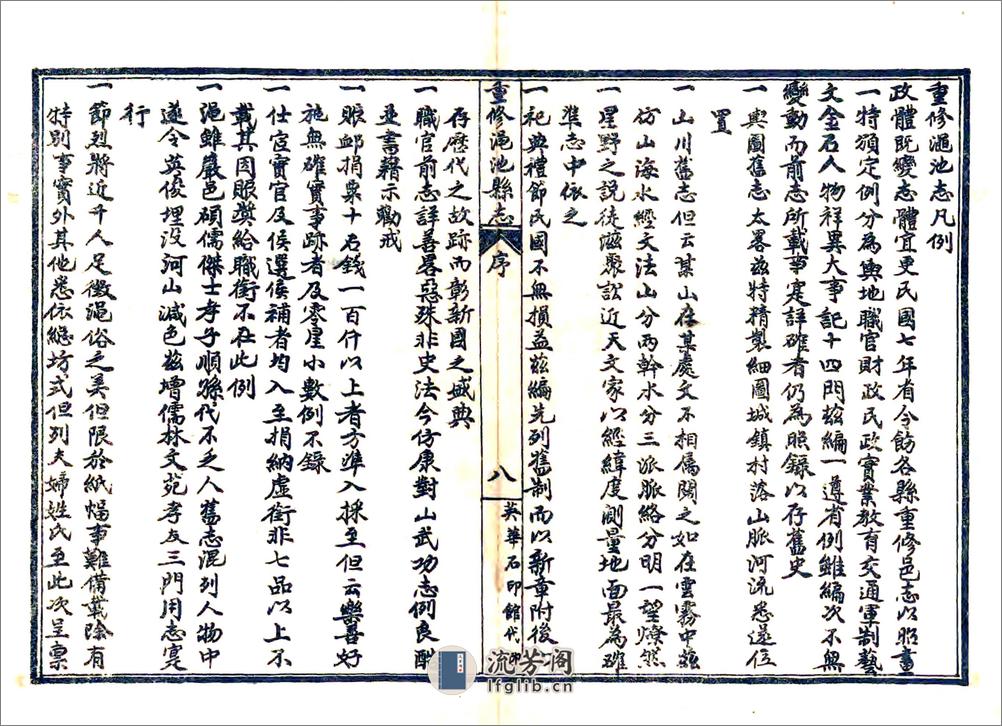 重修澠池志凡例
政體既變志體宜更民國七年省令飭各縣重修邑志以照畫
一特頒定例分為輿地職官財政民政實業教育交通軍制藝
文金石人物祥異大事記十四門玆編一遵省例雖編次不無
變動而前志所載事寔詳確者仍為照錄以存舊史
一輿圖舊志太畧玆特精製細圖城鎮村落山脈河流悉遂位
置
一山川舊志但云某山在某處文不相屬閱之如在雲霧中玆
仿山海水經文法山分兩幹水分三派脈絡分明一望燎然
一星野之說徒滋聚訟近天文家以經緯度測量地面最為確
準志中依之
一祀典禮節民國不無損益玆編先列舊制而以新章附後
重修澠池縣志 序 八 英華石印館代印
存歷代之故跡而彰新國之盛典
一職官前志詳善畧惡殊非史法今仿康對山武功志例良酷
並書藉示勸戒
一賑卹捐粟十石錢一百仟以上者方準入採至但云樂善好
施無確實事跡者及零星小數例不錄
一仕宦實官及侯選侯補者均入至捐納虛銜非七品以上不
載其因賑奬給職銜不在此例
一澠雖巖邑碩儒傑士孝子順孫代不乏人舊志混列人物中
遂令英俊埋沒河山減色玆增儒林文苑孝友三門用志寔
行
一節烈將近千人足徵澠俗之美但限於紙幅事難備載除有
特別事實外其他悉依總坊式但列夫婦姓氏至此次呈禀
流芳閣
lfglib.cn